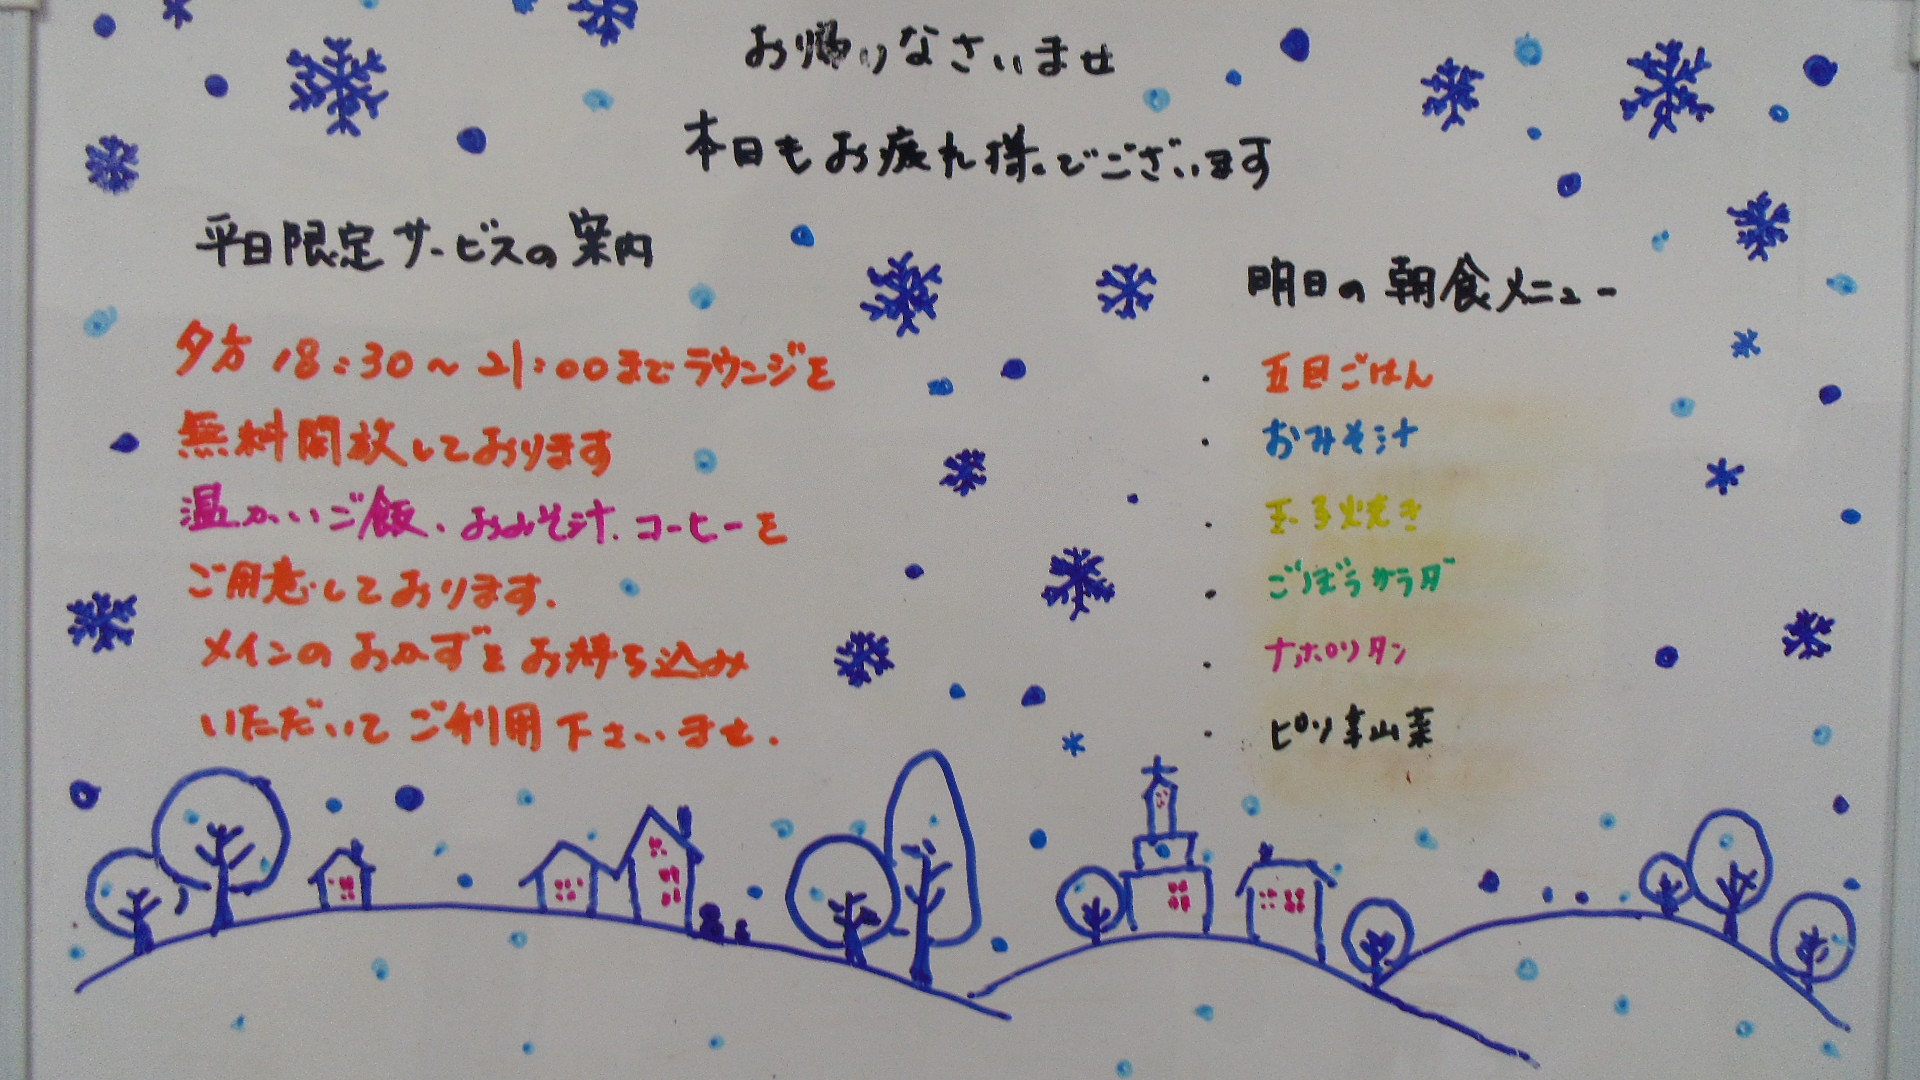 お帰りなさいませ
本日もお疲れ様でございます
平日限定サービスの案内
夕方 18:30～21:00までラウンジを
無料開放しております
温かいご飯、おみそ汁、コーヒーを
ご用意しております.
メインのおかずをお持ち込み
いただいてご利用下さいませ.
明日の朝食メニュー
・五目ごはん
・おみそ汁
・玉子焼き
・ごぼうサラダ
・ナポリタン
・ピリ辛山菜